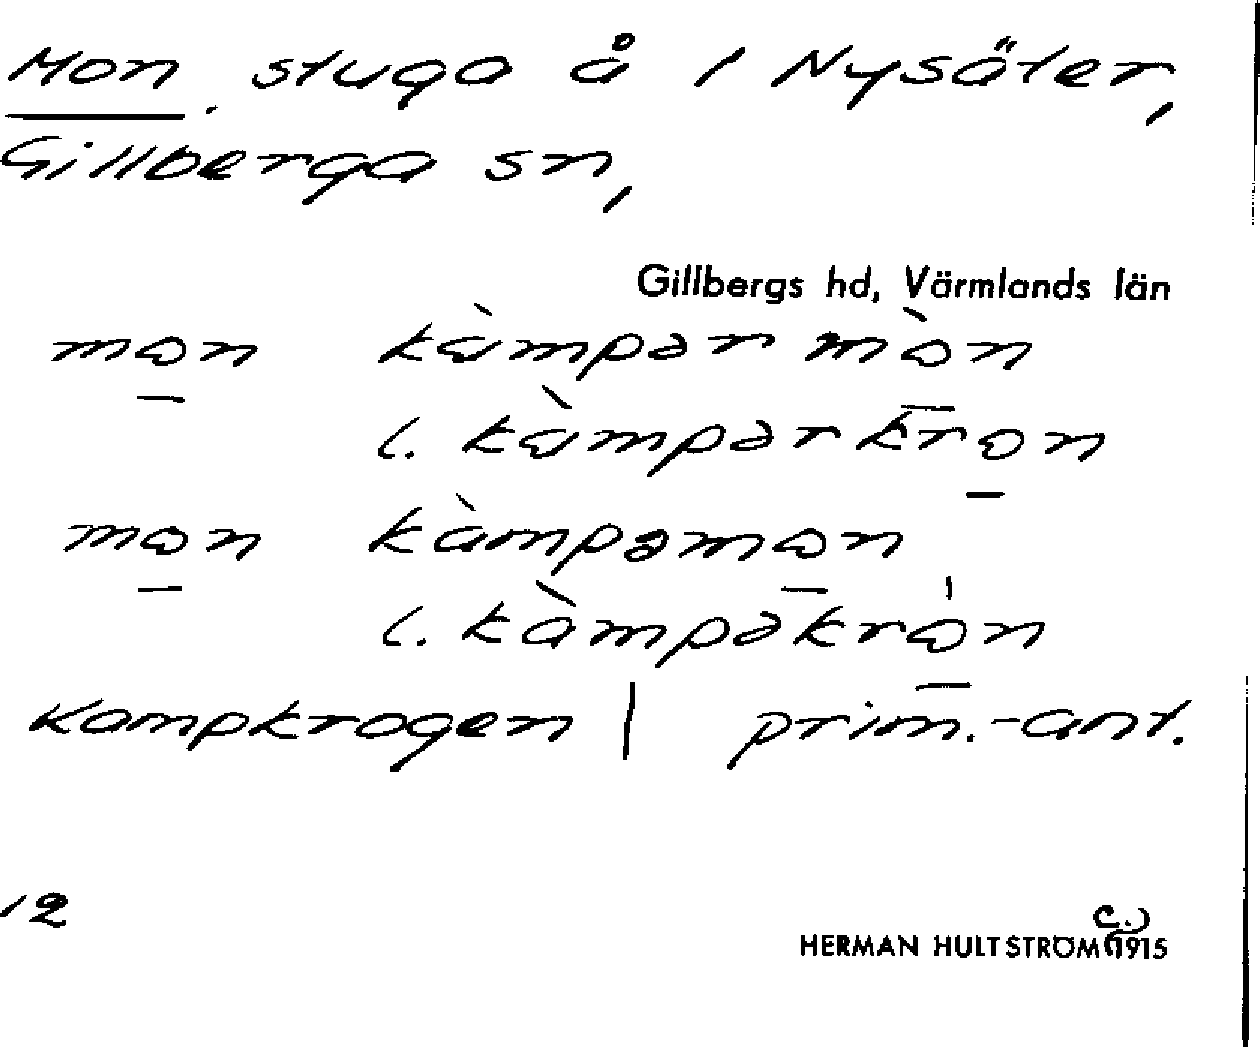 Mon, stuga å 1 Nysäter,
Gillberga sn,
Gillbergs hd, Värmlands län
mon kàmpər mòn
l. kàmpərkron
mon kàmpəmon
l. kàmpəkron
Kampkrogen | prim.-ant.
12
HERMAN HULTSTRÖM (C.) 1915